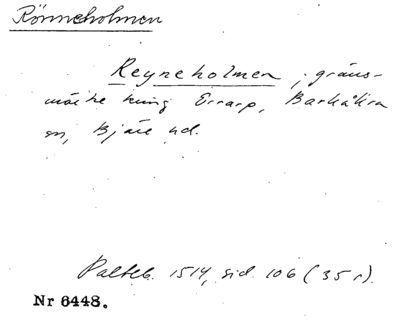 Rönneholmen
Reyneholmen, gräns-
märke kring Errarp, Barkåkra
sn, Bjäre hd.
Palteb. 1514, sid. 106 (35 r).
Nr 6448.